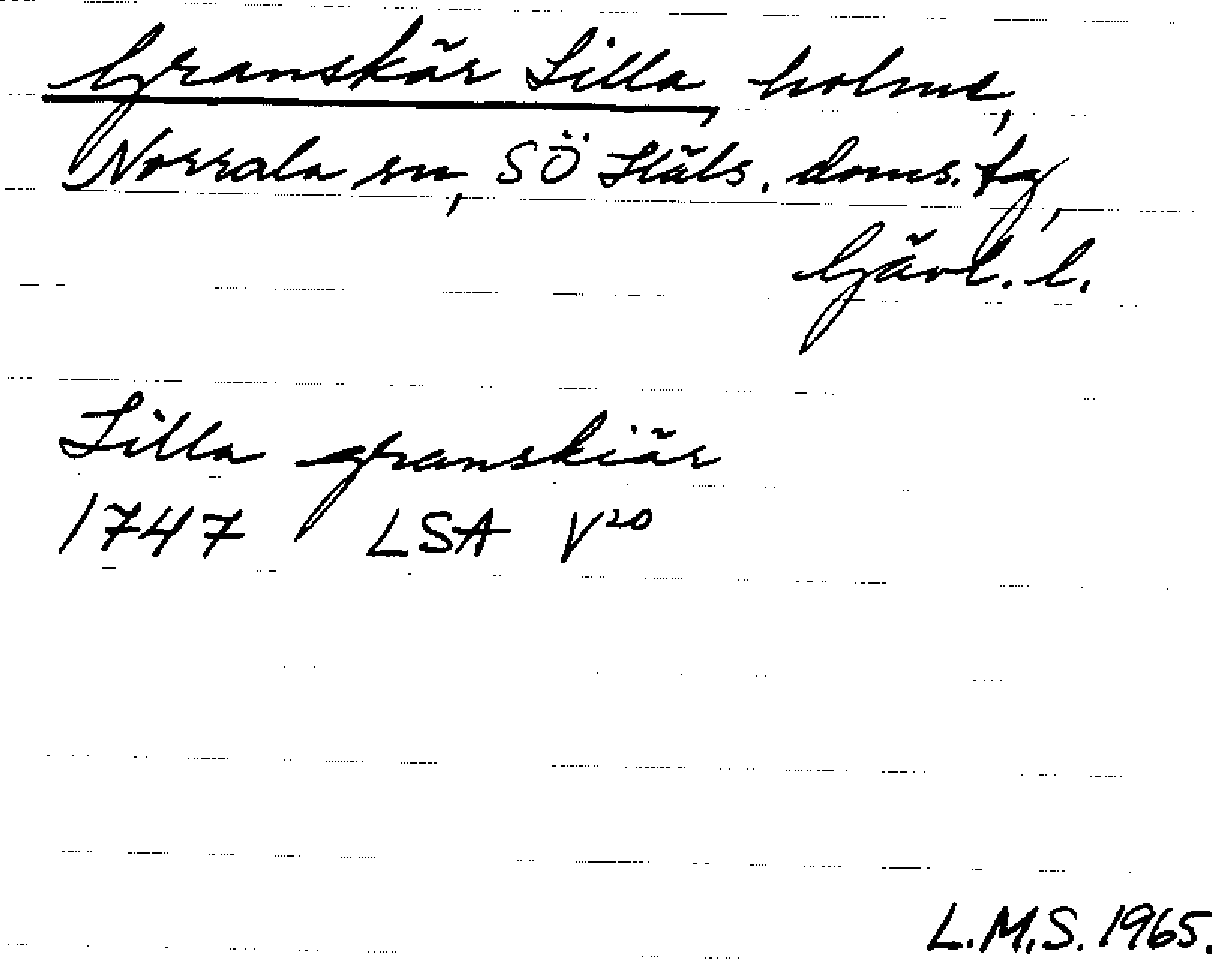 Granskär Lilla, holme,
Norrala sn, SÖ Häls. doms. tg,
Gävl. l.
Lilla granskiär
1747 LSA V²⁰
L.M.S. 1965.